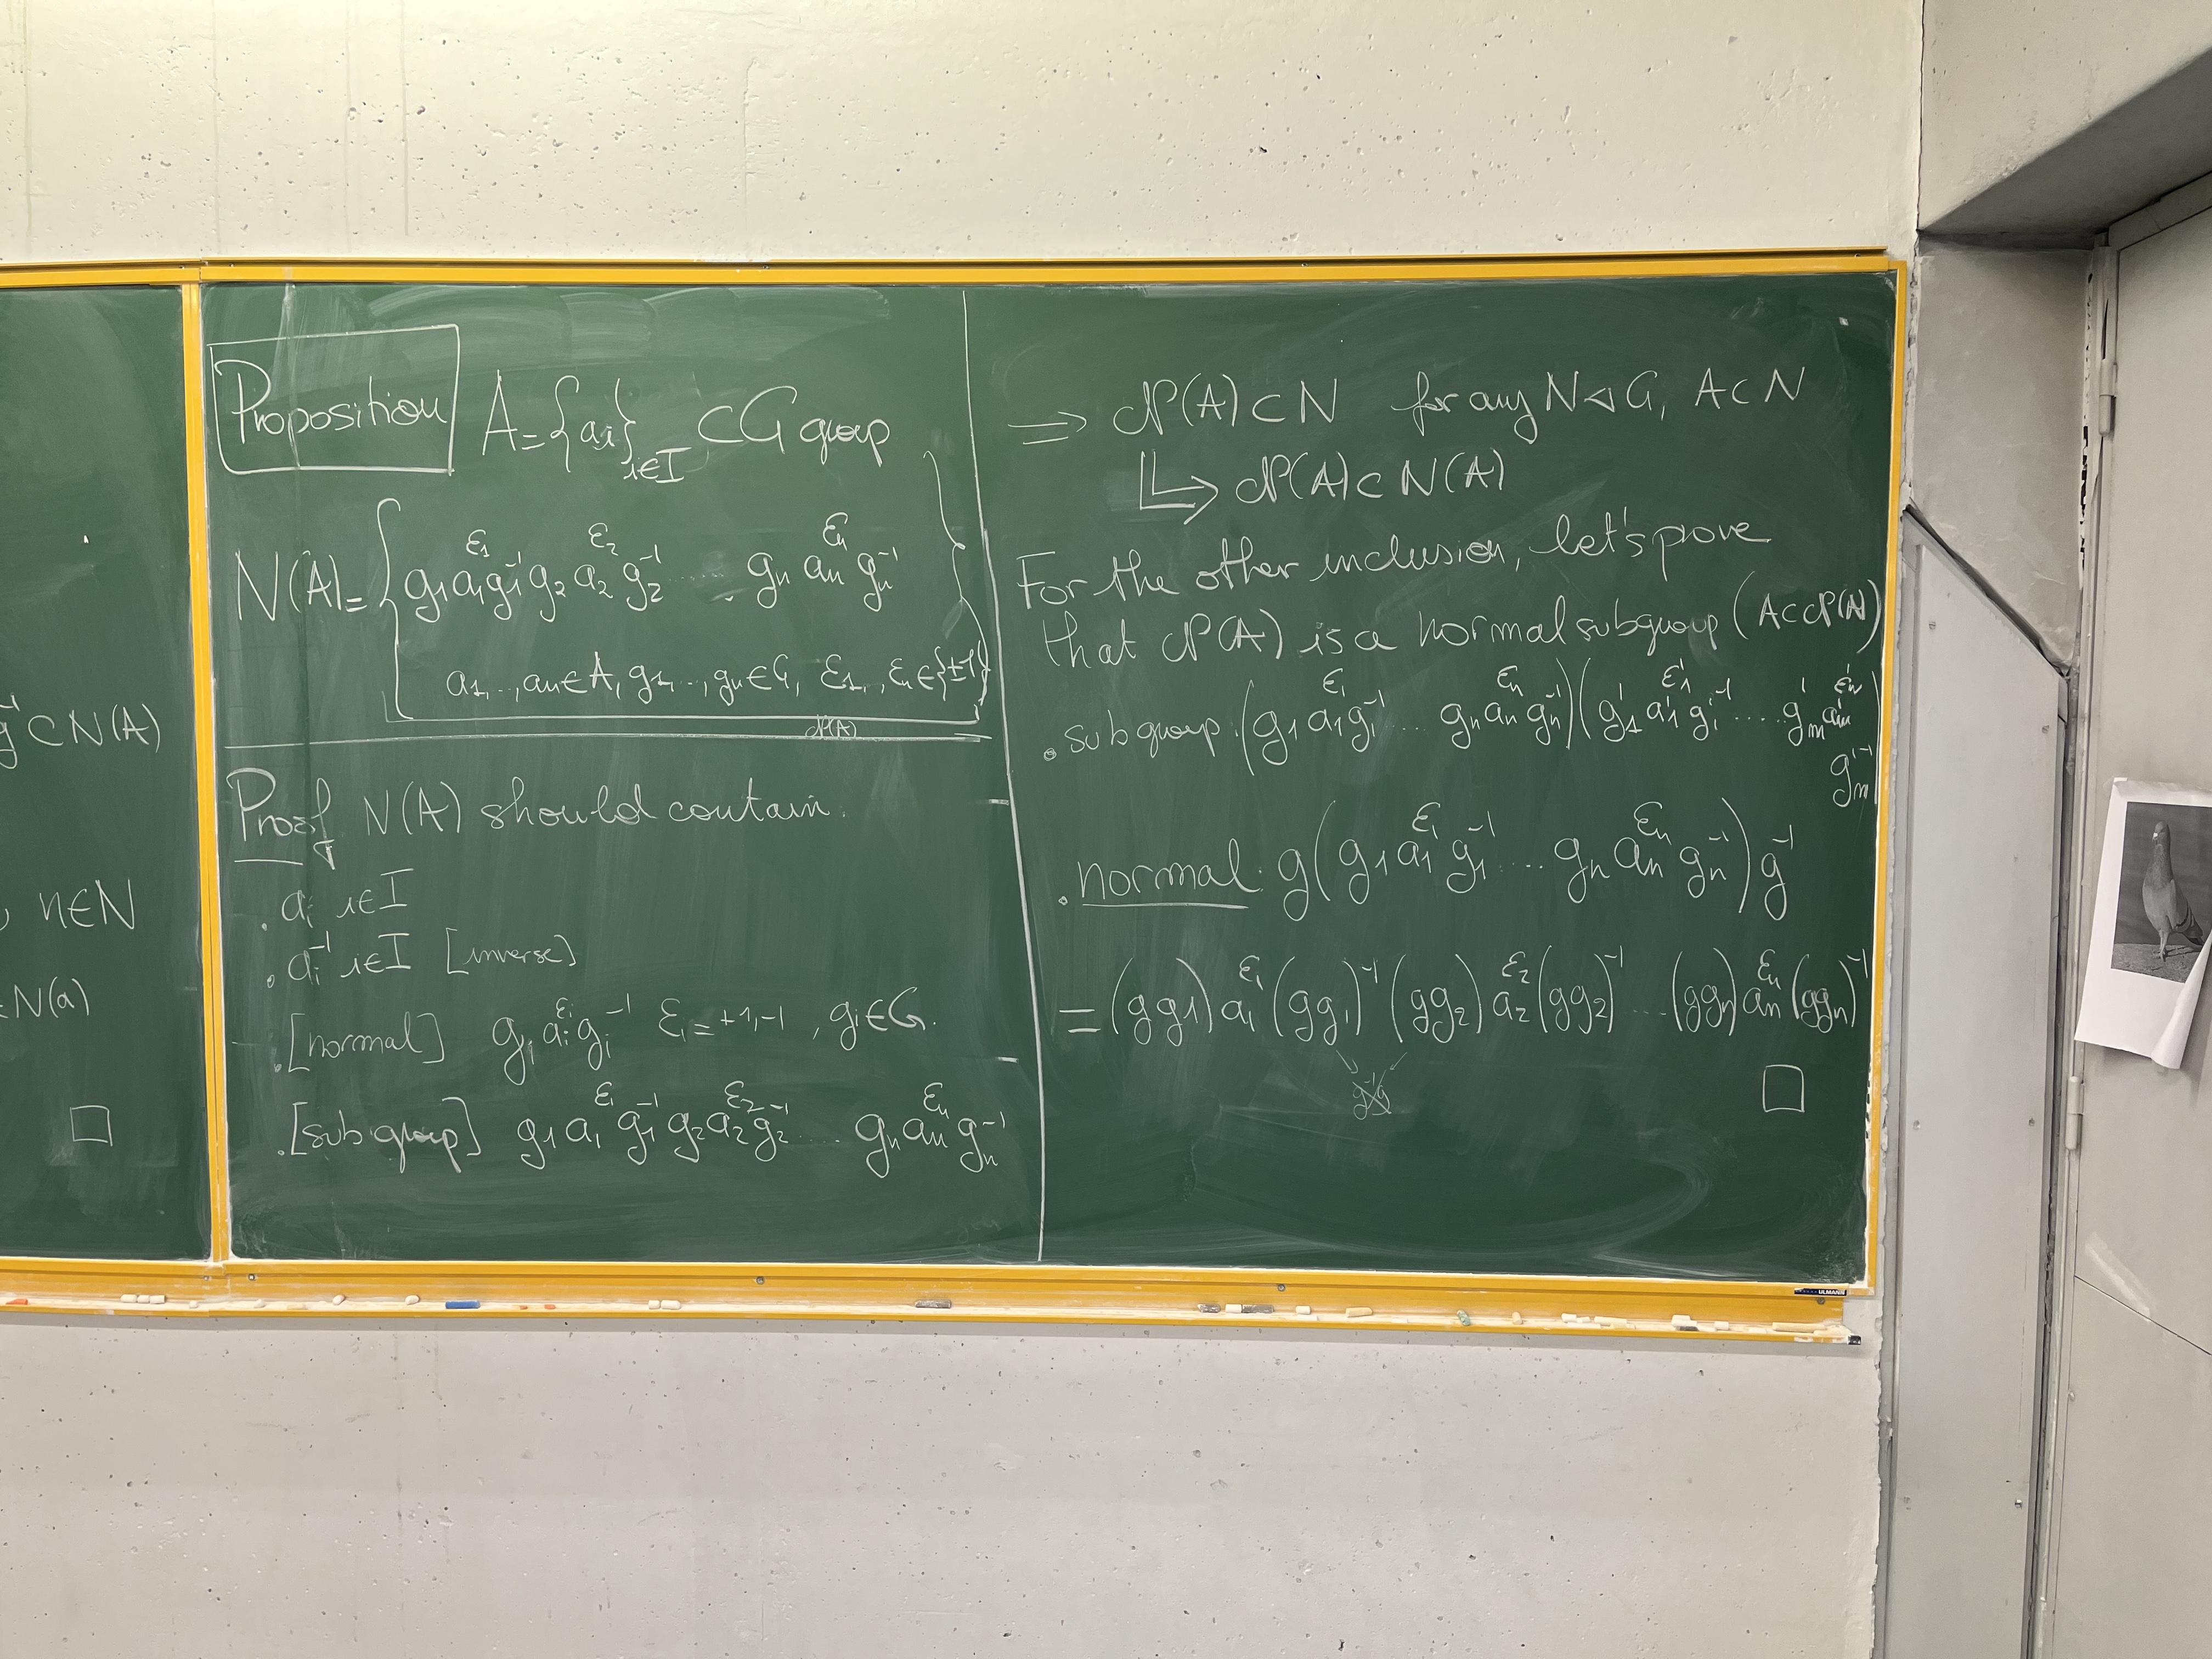 g⁻¹ ⊂ N(A)
n∈N
∈N(a)
□
Proposition A = {ai}i∈I ⊂ G group
N(A) = { g1 a1^ε1 g1⁻¹ g2 a2^ε2 g2⁻¹ ..... gn an^εn gn⁻¹
a1,..,an∈A, g1,..,gn∈G, ε1,..,εn∈{±1} }
𝒩(A)
Proof N(A) should contain:
. ai i∈I
. ai⁻¹ i∈I [inverse]
. [normal] gi ai^εi gi⁻¹ εi = +1,-1, gi∈G.
. [subgroup] g1 a1^ε1 g1⁻¹ g2 a2^ε2 g2⁻¹ .... gn an^εn gn⁻¹
⇒ 𝒩(A) ⊂ N for any N ◁ G, A ⊂ N
↳ 𝒩(A) ⊂ N(A)
For the other inclusion, let's prove
that 𝒩(A) is a normal subgroup (A⊂𝒩(A))
. subgroup: (g1 a1^ε1 g1⁻¹ ... gn an^εn gn⁻¹)(g'1 a'1^ε'1 g'1⁻¹ .... g'm a'm^ε'm
g'm⁻¹)
. normal: g(g1 a1^ε1 g1⁻¹ ... gn an^εn gn⁻¹)g⁻¹
= (gg1) a1^ε1 (gg1)⁻¹ (gg2) a2^ε2 (gg2)⁻¹ ... (ggn) an^εn (ggn)⁻¹
g⁻¹g
□
ULMANN